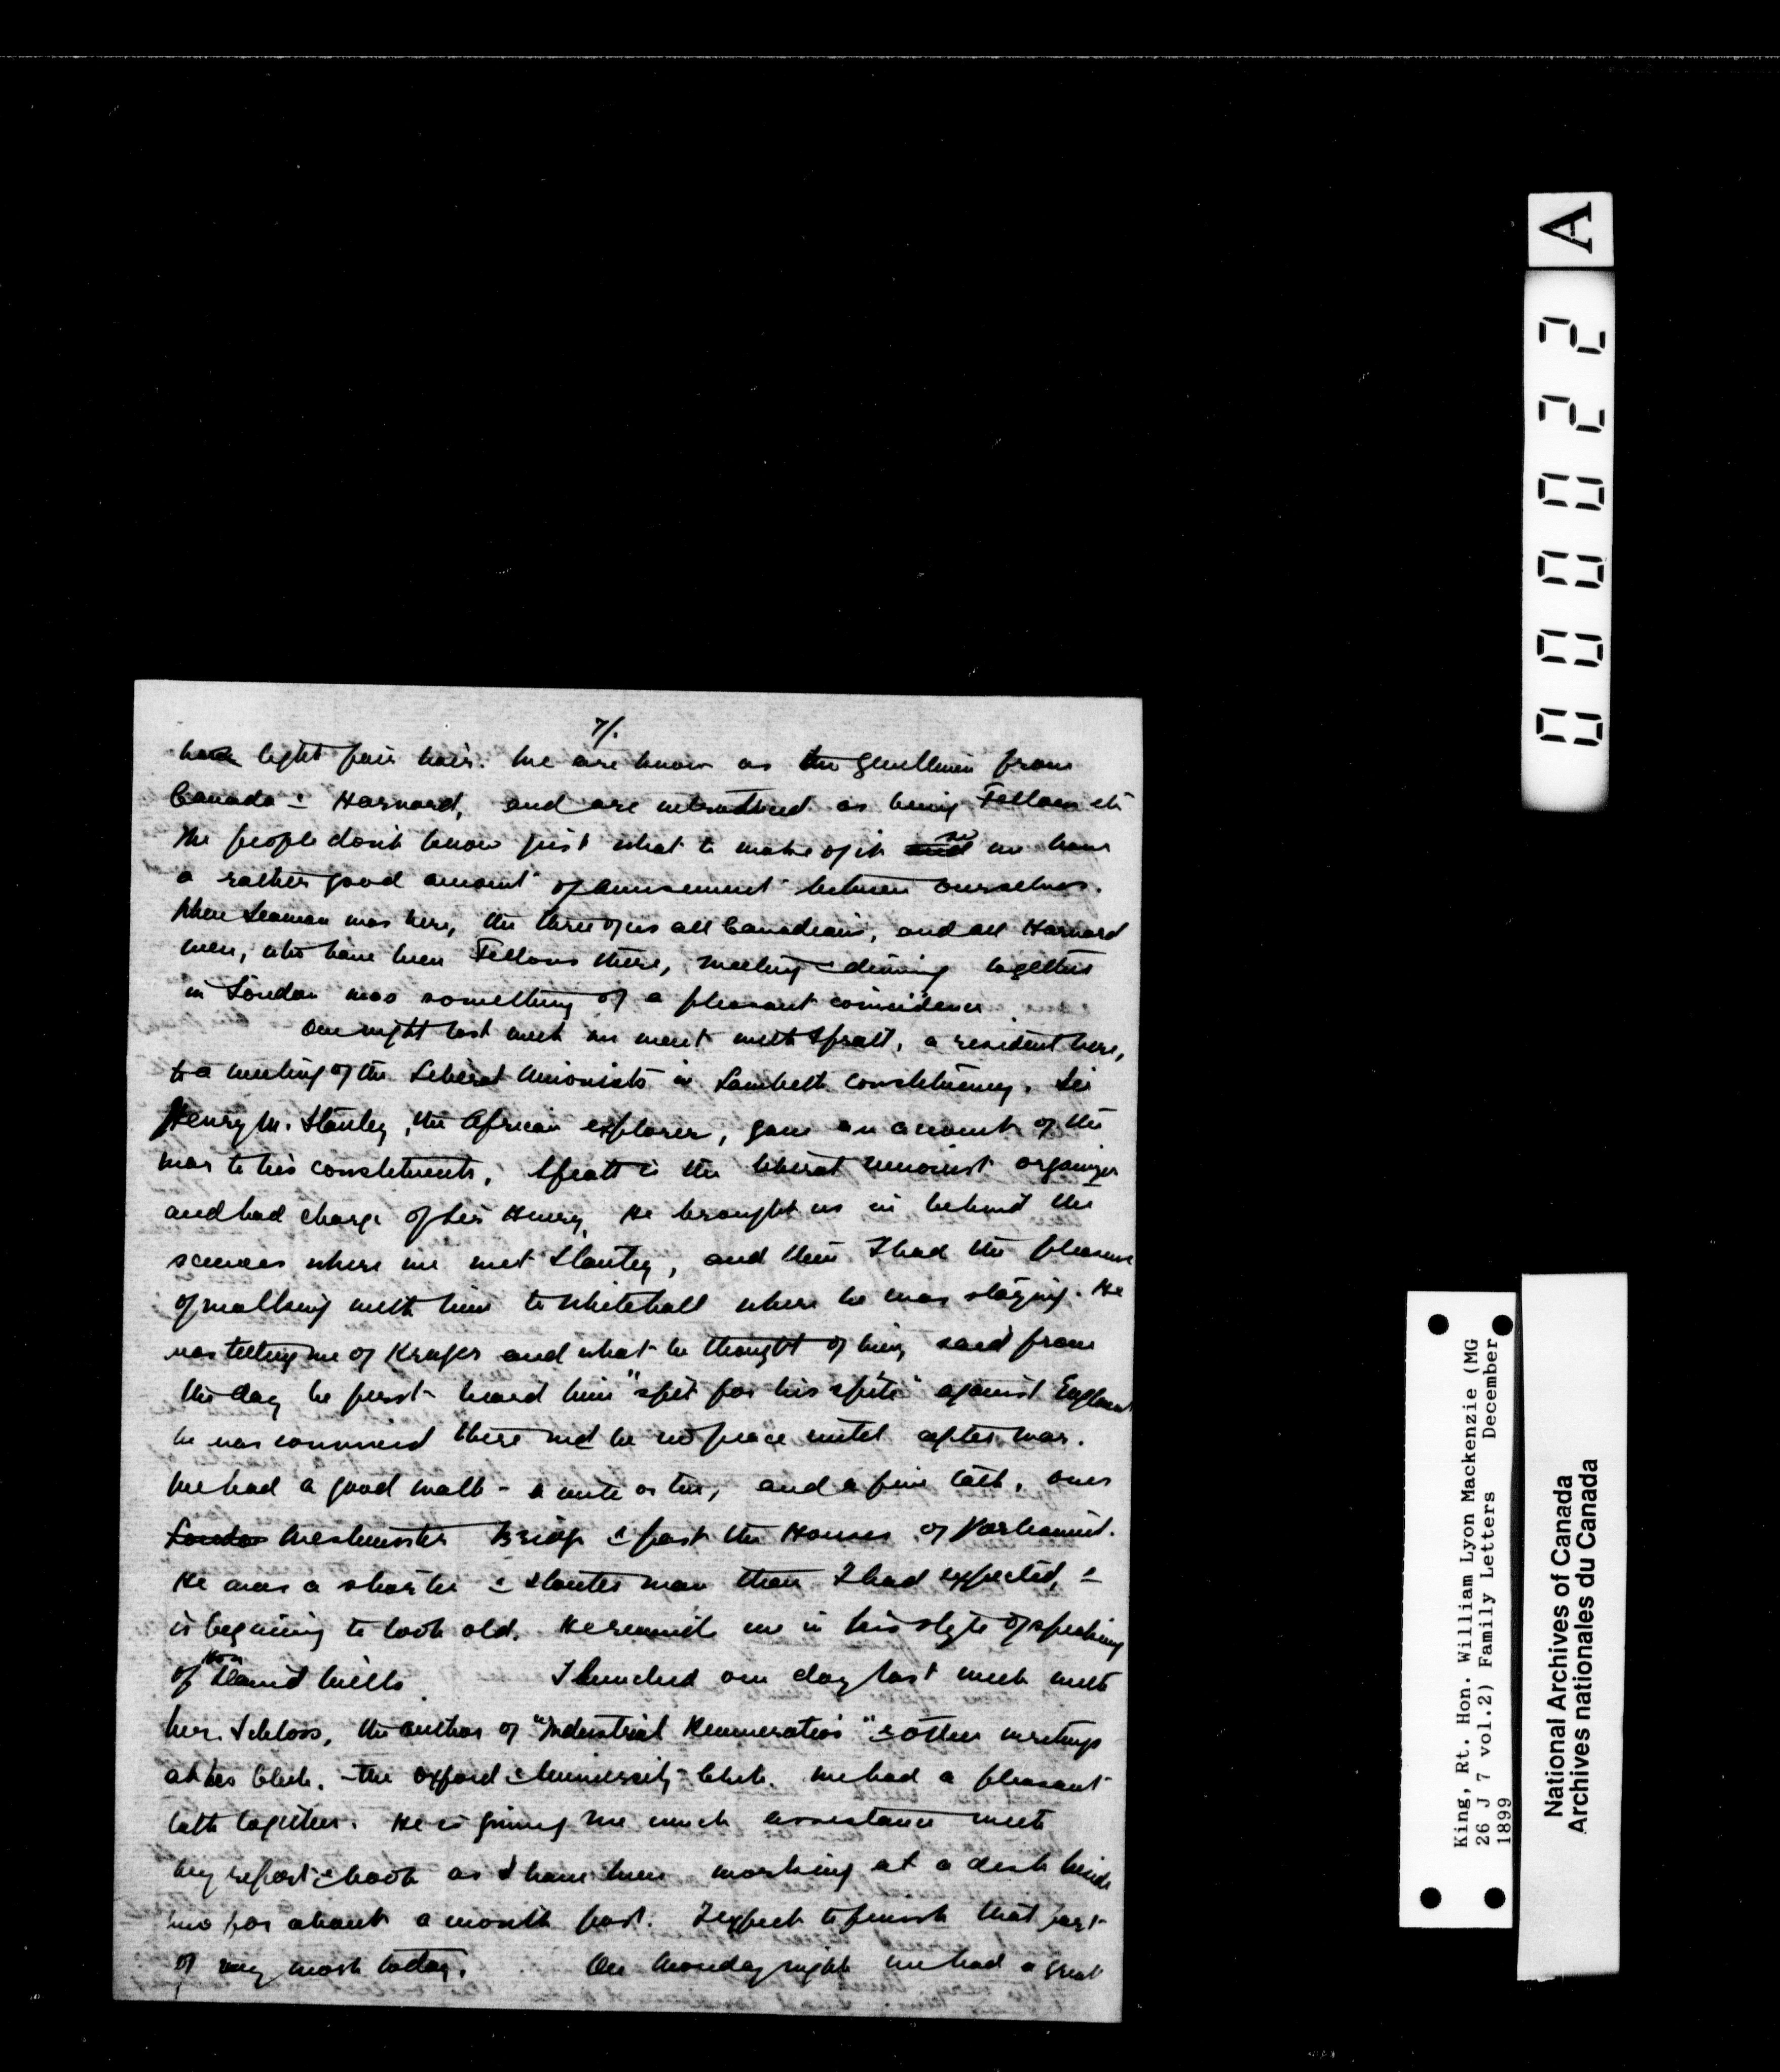 7/.
have light fair hair. We are known as the gentlemen from
Canada & Harvard, and are introduced as being Fellows etc
The people don't know just what to make of it and so we have
a rather good amount of amusement between ourselves.
When Seaman was here, the three of us all Canadians, and all Harvard
men, who have been Fellows there, meeting & dining together
in London was something of a pleasant coincidence.
One night last week we went with Spratt, a resident here,
to a meeting of the Liberal Unionists in Lambeth constituency. Sir
Henry M. Stanley, the African explorer, gave an account of the
war to his constituents, Spratt is the liberal unionist organizer
and had charge of Sir Henry. He brought us in behind the
scences where we met Stanley, and then I had the pleasure
of walking with him to Whitehall where he was staying. He
was telling me of Kruger and what he thought of him, said from
the day he first heard him "spit for his spite" against England
he was convinced there wd be no peace until after war.
We had a good walk - a mile or two, and a fine talk, over
London Westminster Bridge & past the Houses of Parliament.
He was a shorter & stouter man than I had expected, &
is begining to look old. He reminds me in his style of speaking
of Hon David Mills. I lunched one day last week with
Mr. Schloss, the author of "Industrial Remuneration" & other writings
at his Club, - the Oxford & University Club. We had a pleasant
talk together. He is giving me much assistance with
my report & book as I have been working at a desk beside
him for about a month past. I expect to finish that part
of my work today. On Monday night we had a great
A
000022
King, Rt. Hon. William Lyon Mackenzie (MG
26 J 7 vol.2) Family Letters December
1899
National Archives of Canada
Archives nationales du Canada